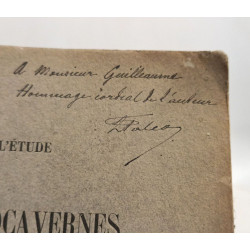 A Monsieur Guilleaume
Hommage cordial de l'auteur
L'ÉTUDE
OCAVERNES